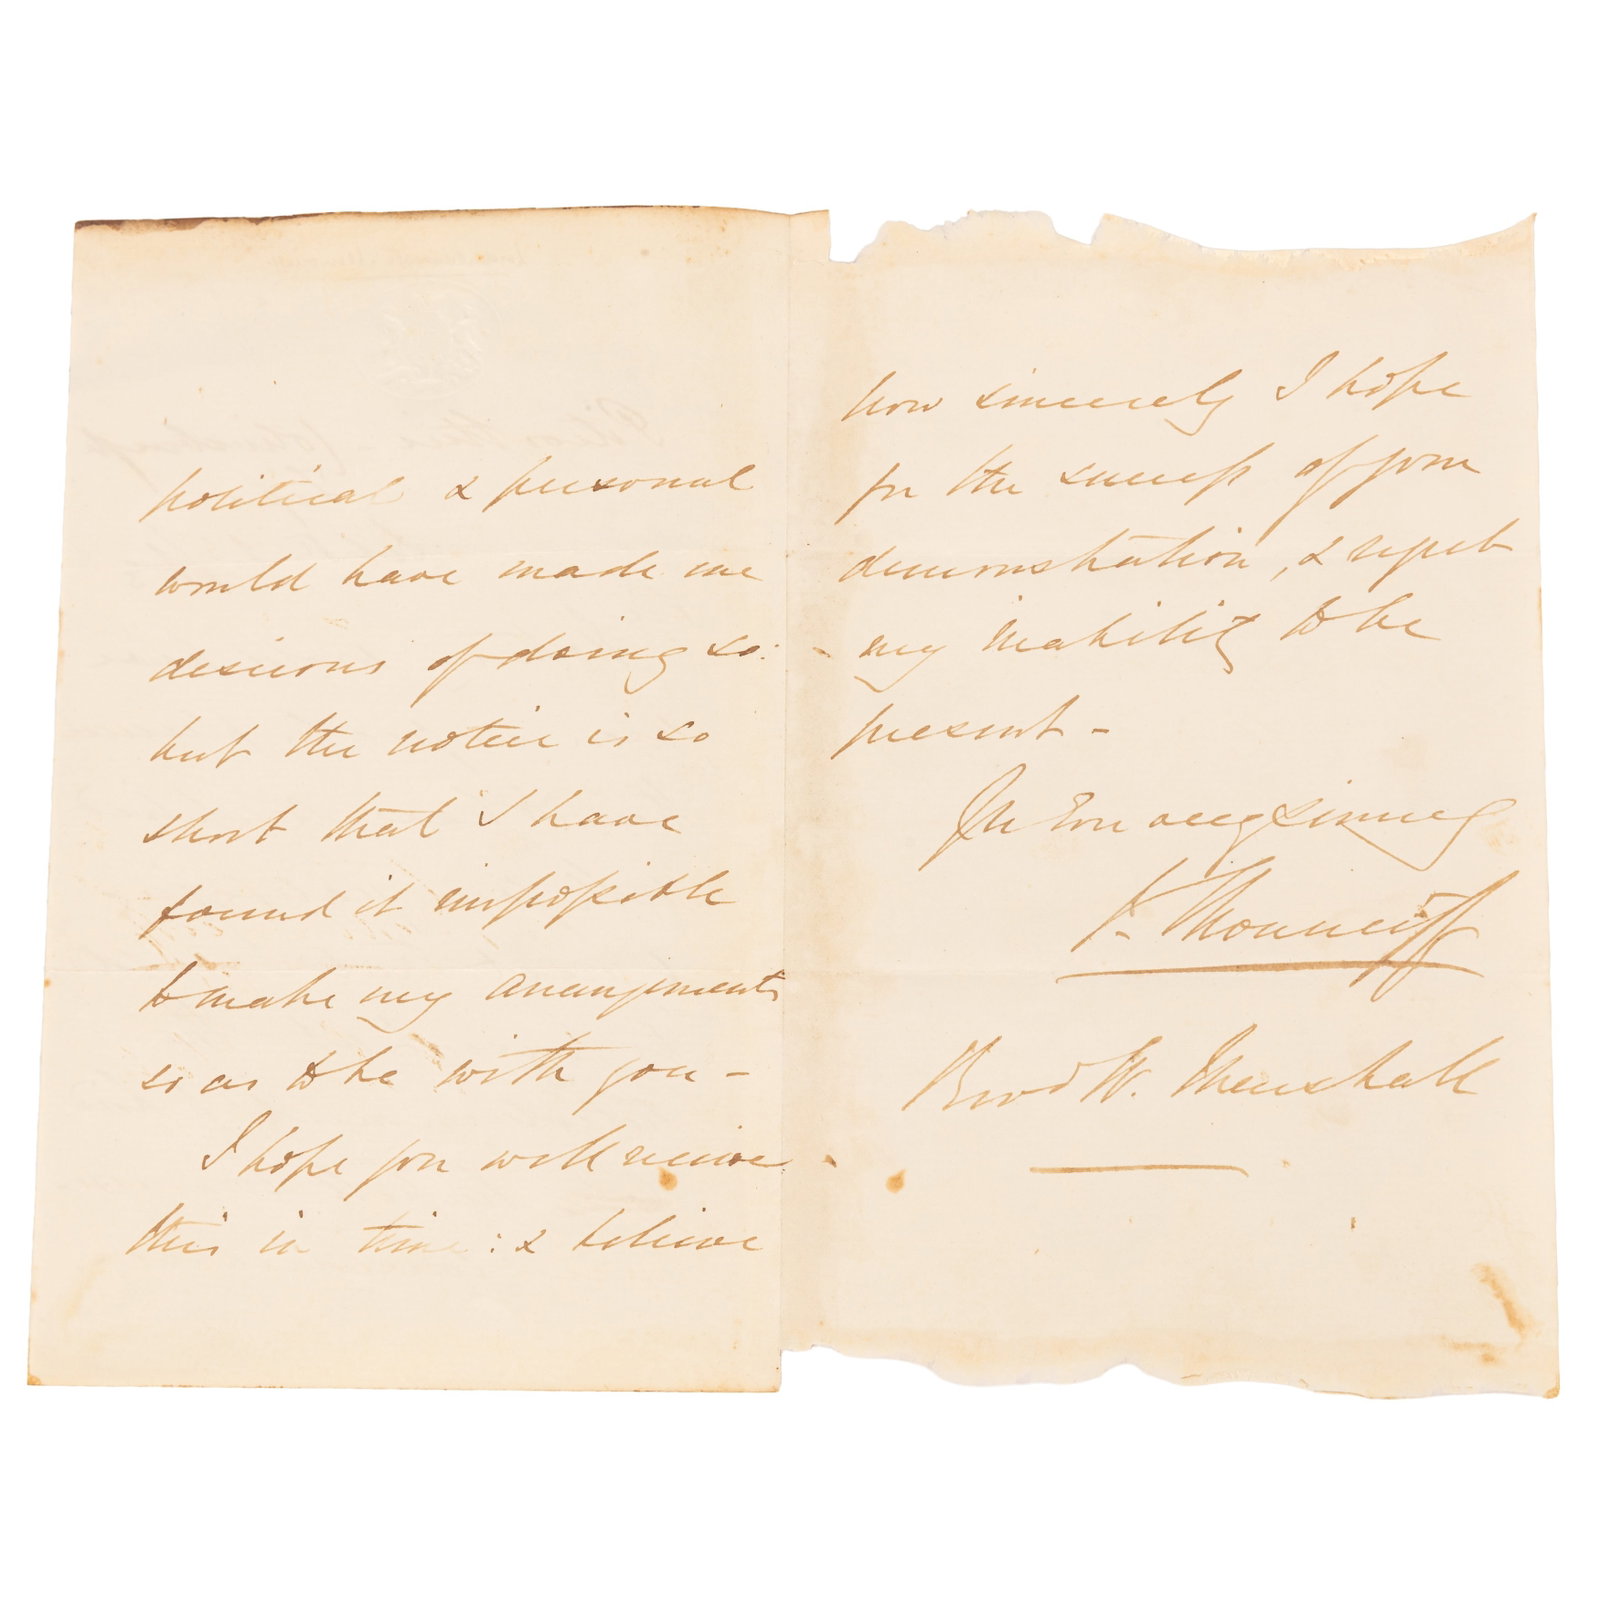 political & personal
would have made me
desirous of doing so:
but the notice is so
short that I have
found it impossible
to make my arrangements
so as to be with you -
I hope you will receive
this in time: & believe
how sincerely I hope
for the success of your
demonstration, & regret
my inability to be
present -
very sincerely
J. Moncreiff
W. Marshall